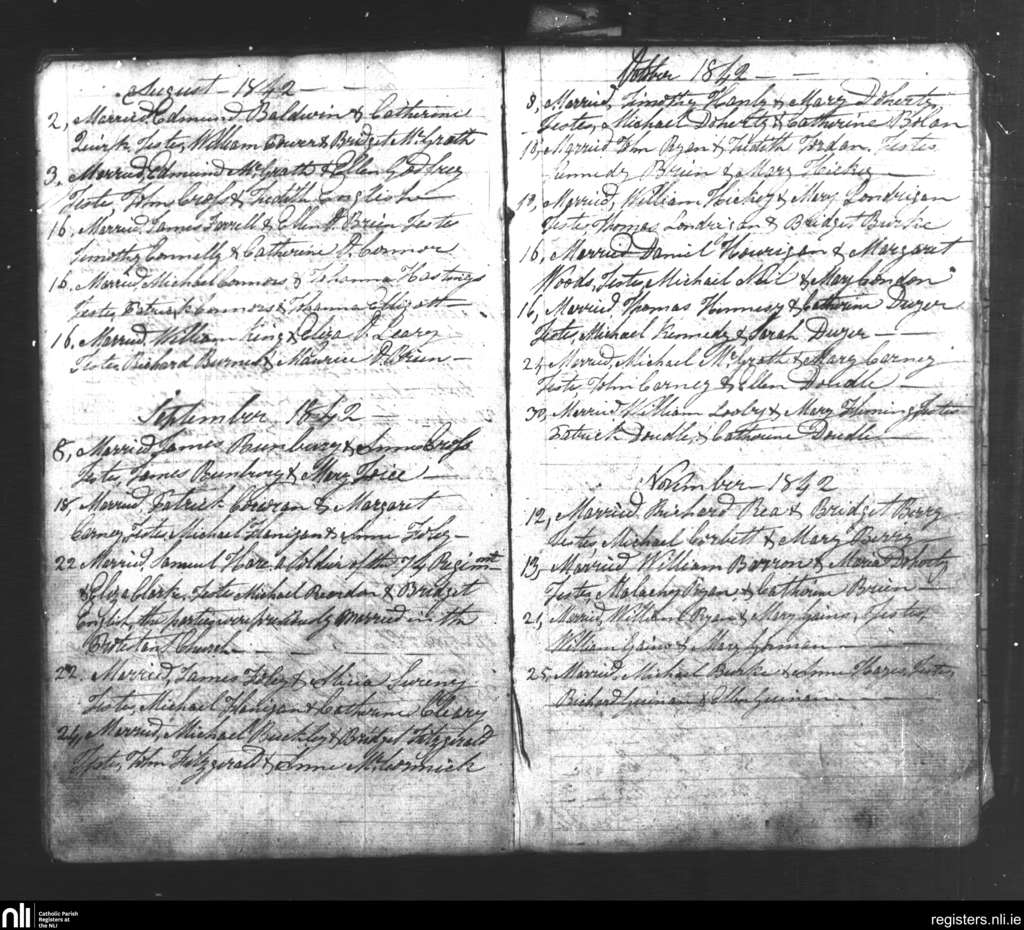 August 1842
2, Married, Edmund Baldwin & Catherine
Quirk, Testes, William Power & Bridget McGrath
3, Married, Edmund McGrath & Ellen Godfrey
Teste, John Cross & Judith English
16, Married, James Farrell & Ellen O'Brien Testes
Timothy Connelly & Catherine O'Connor
16, Married, Michael Connors & Johanna Hastings
Testes, Patrick Connors & Johanna
16, Married, William King & Eliza O'Leary
Testes, Richard Burnett & Maurice O'Brien
September 1842
8, Married, James Bunbury & Anne Cross
Testes, James Bunbury & Mary
18, Married, Patrick Corcoran & Margaret
Carney, Testes, Michael Flanigan & Anne Foley
22 Married, Samuel Hare a Soldier of the 74 Regiment
& Eliza Clark, Teste Michael Reardon & Bridget
English, the parties were previously married in the
Protestant Church
22. Married, James Foley & Alicia Sweeny
Testes, Michael Flanigan & Catherine Cleary
24, Married, Michael Buckley & Bridget Fitzgerald
Teste, John Fitzgerald & Anne McCormick
October 1842
8, Married, Timothy Hanly & Mary Doherty,
Testes, Michael Doherty & Catherine Bolan
10, Married John Ryan & Judith Jordan, Testes
Kennedy Brien & Mary Hickey
10, Married, William Hickey & Mary Londrigan
Testes Thomas Londrigan & Bridget Burke
16, Married Daniel Hourigan & Margaret
Woods, Testes, Michael Neil & Mary Condon
16, Married Thomas Hennessy & Catherine Dwyer
Teste, Michael Kennedy & Sarah Dwyer
24 Married, Michael McGrath & Mary Carney
Teste John Carney & Ellen Doudle
30, Married William Looby & Mary Fleming, Testes
Patrick Doudle, & Catherine Doudle
November 1842
12, Married, Richard Rea & Bridget Berry
Testes, Michael Corbett & Mary Berry
13, Married William Barron & Maria Doherty
Testes, Malachy Ryan & Catherine Brien
21, Married, William Ryan & Mary Gains, Testes,
William Gains & Mary
25, Married, Michael Burke & Anne Hayes, Testes
Richard Guinan & Ellen Guinan
nli
Catholic Parish
Registers at
the NLI
registers.nli.ie